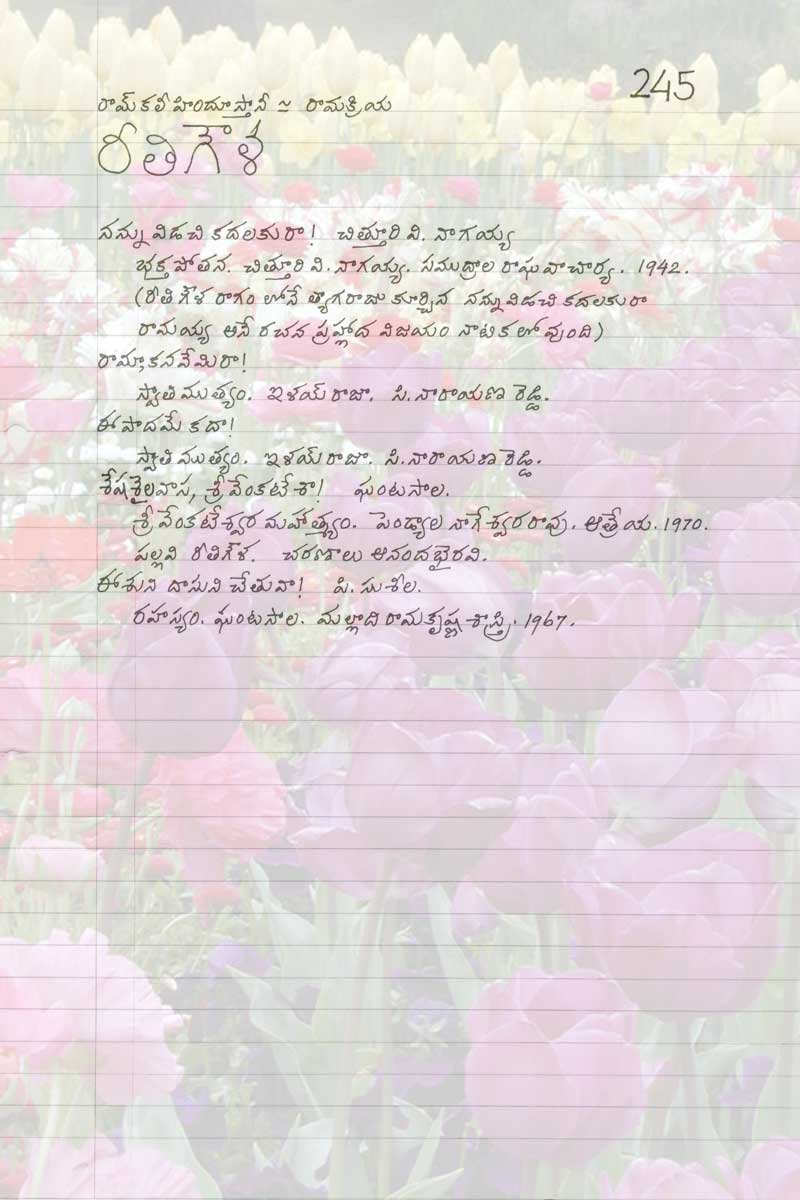 245
రామ్‌కలీ హిందూస్తానీ ≃ రామక్రియ
రీతిగౌళ
నన్ను విడచి కదలకురా! చిత్తూరి వి. నాగయ్య
భక్త పోతన. చిత్తూరి వి. నాగయ్య. సముద్రాల రాఘవాచార్య. 1942.
(రీతి గౌళ రాగం లోనే త్యాగరాజు కూర్చిన నన్ను విడచి కదలకురా
రామయ్య అనే రచన ప్రహ్లాద విజయం నాటికలో వుంది)
రామా కనవేమిరా!
స్వాతి ముత్యం. ఇళయ్ రాజా. సి. నారాయణ రెడ్డి.
ఈ పాదమే కదా!
స్వాతి ముత్యం. ఇళయ్ రాజా. సి. నారాయణ రెడ్డి.
శేషశైలవాస, శ్రీ వేంకటేశా! ఘంటసాల.
శ్రీ వేంకటేశ్వర మహాత్మ్యం. పెండ్యాల నాగేశ్వరరావు. ఆత్రేయ. 1970.
పల్లవి రీతిగౌళ. చరణాలు ఆనందభైరవి.
ఈశుని దాసుని చేతువా! పి. సుశీల.
రహస్యం. ఘంటసాల. మల్లాది రామకృష్ణ శాస్త్రి. 1967.